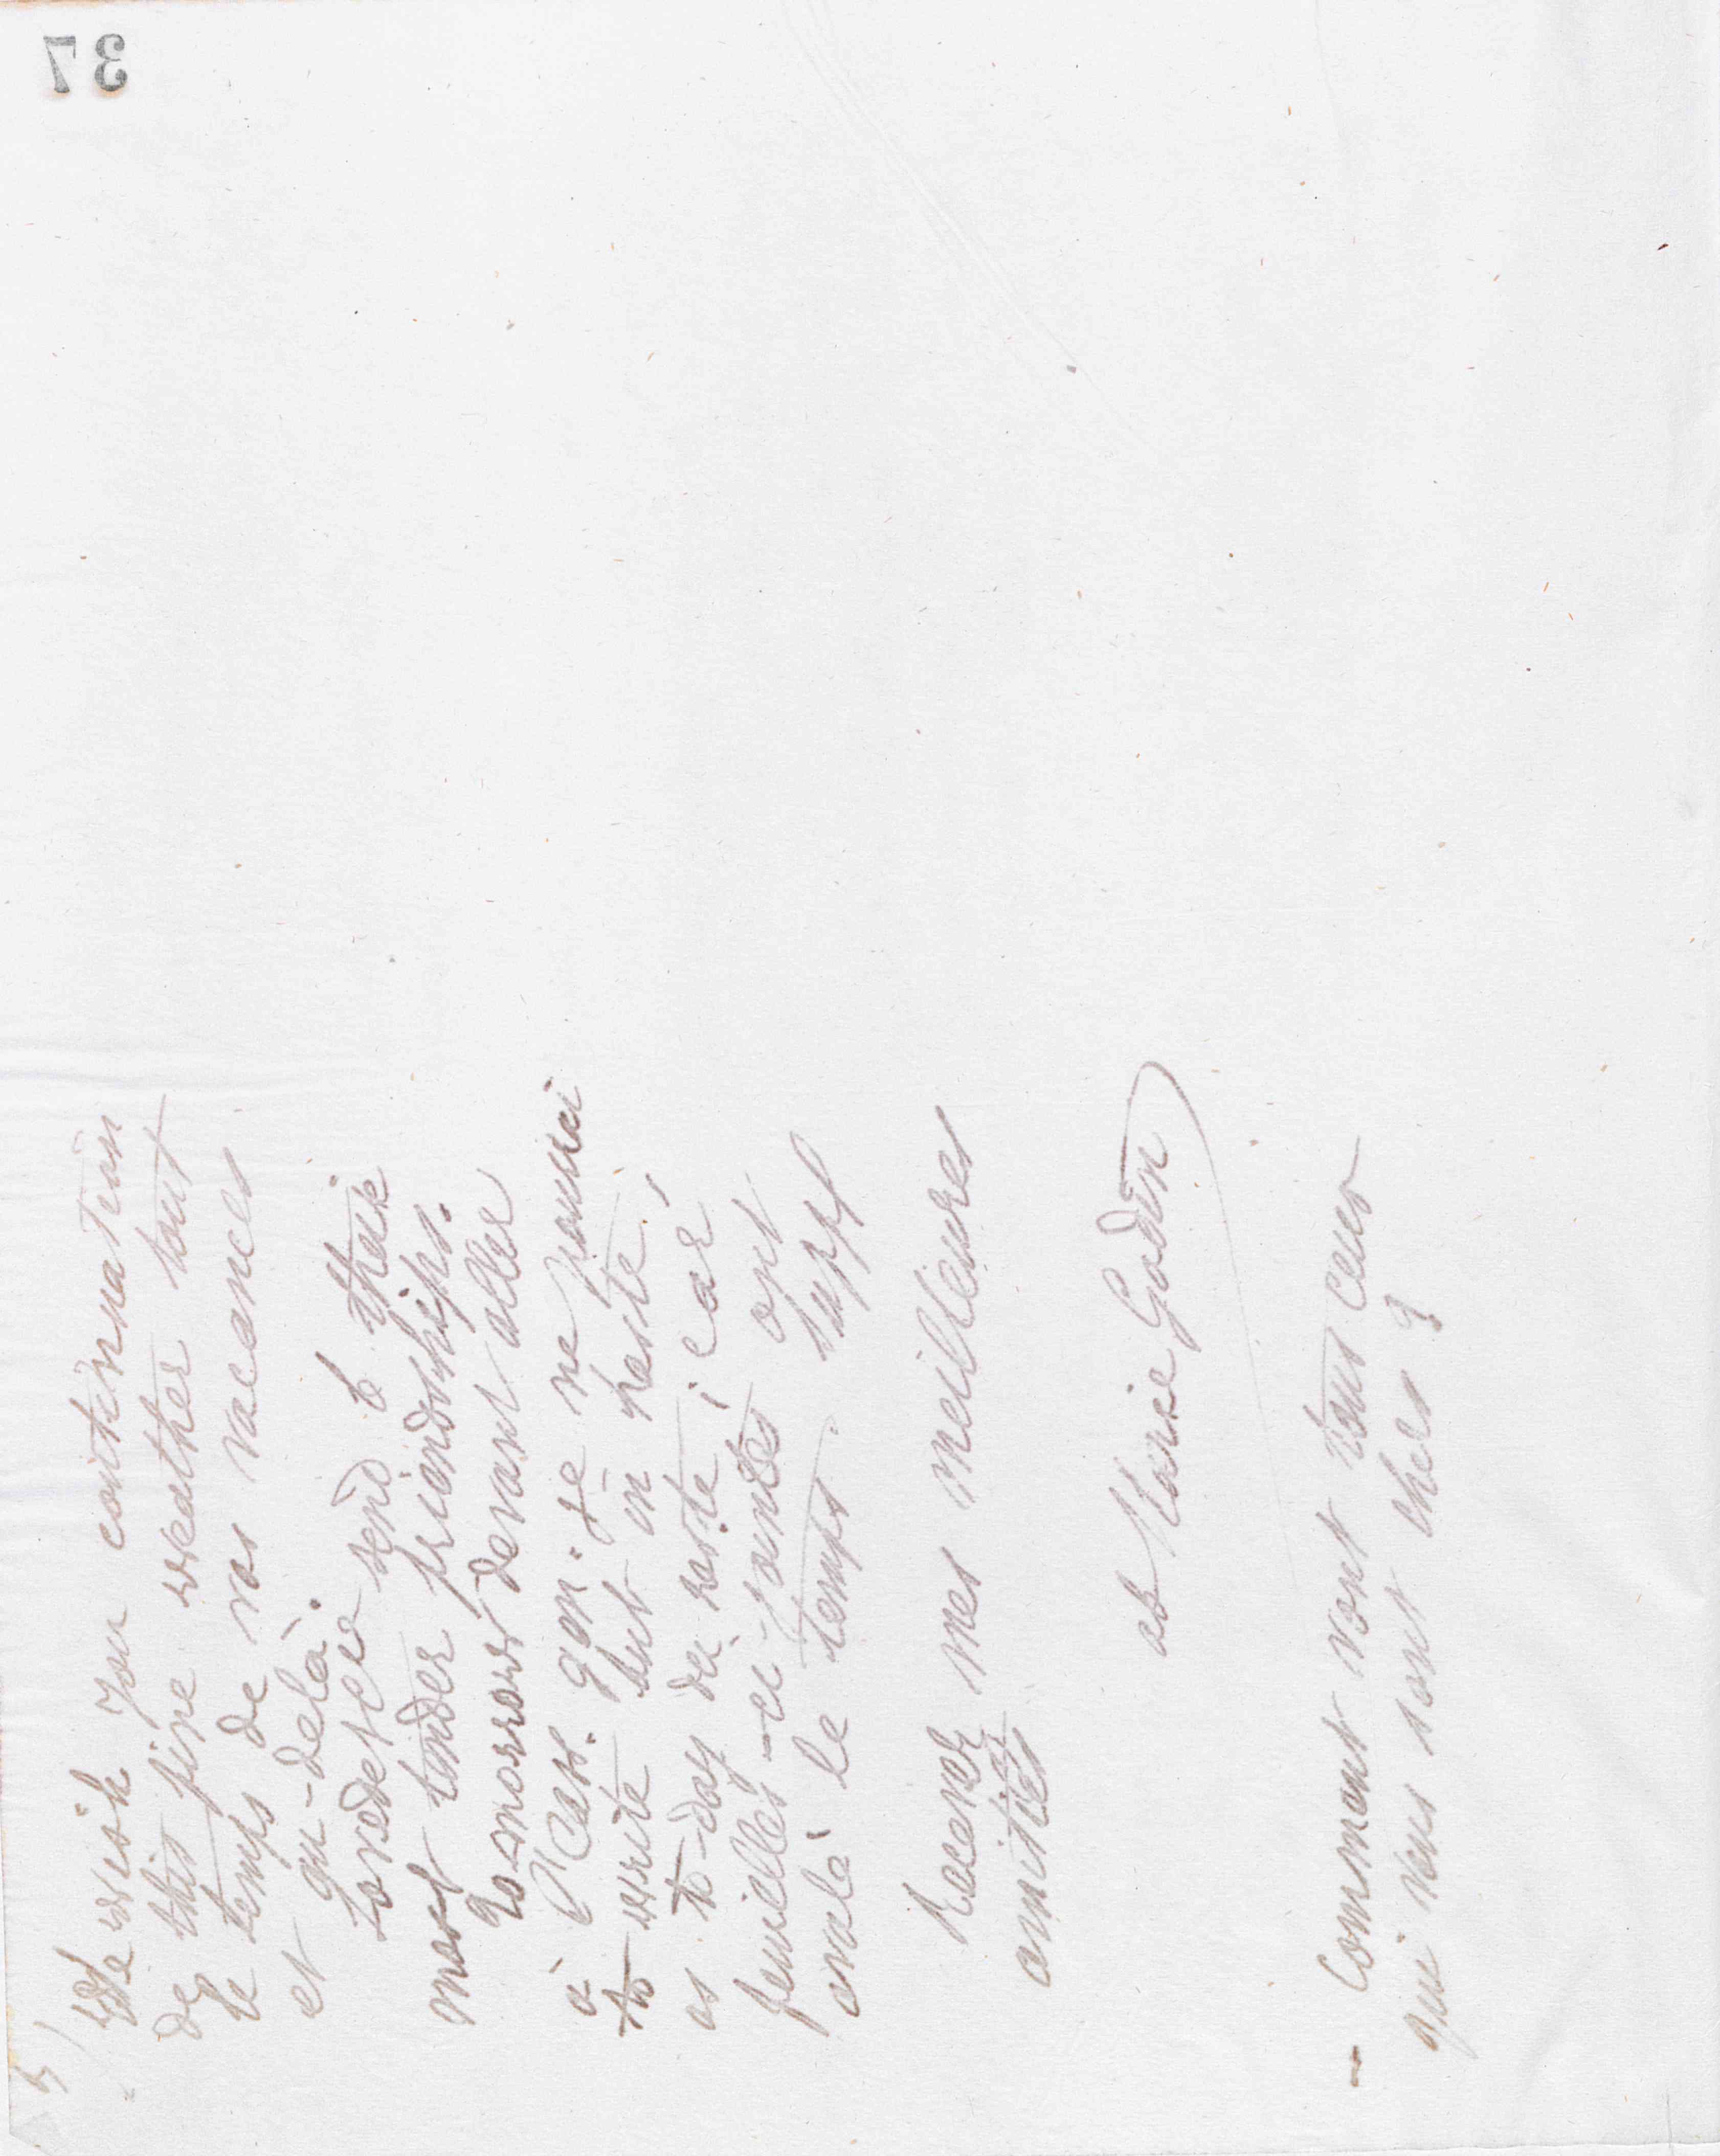 37
5/
We wish you continuation
de this fine weather tout
le temps de vos vacances
et au-delà.
send to their
most tender friendships.
To-morrow devant aller
à je ne pourrai
to write but in haste,
as to-day du reste; car
feuilles-ci-jointes ont
avalé le temps.
Recevez mes meilleures
amitiés
ab Marie Godin
– Comment vont tous ceux
qui vous sont chers ?